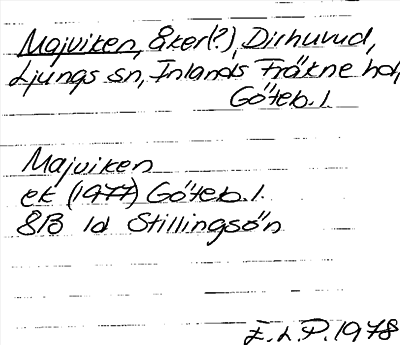 Majviken, åker(?), Dirhuvud,
Ljungs sn, Inlands Fräkne hd,
Göteb. l.
Majviken
ek (1977) Göteb. l.
8B 1d Stillingsön
E.L.P. 1978